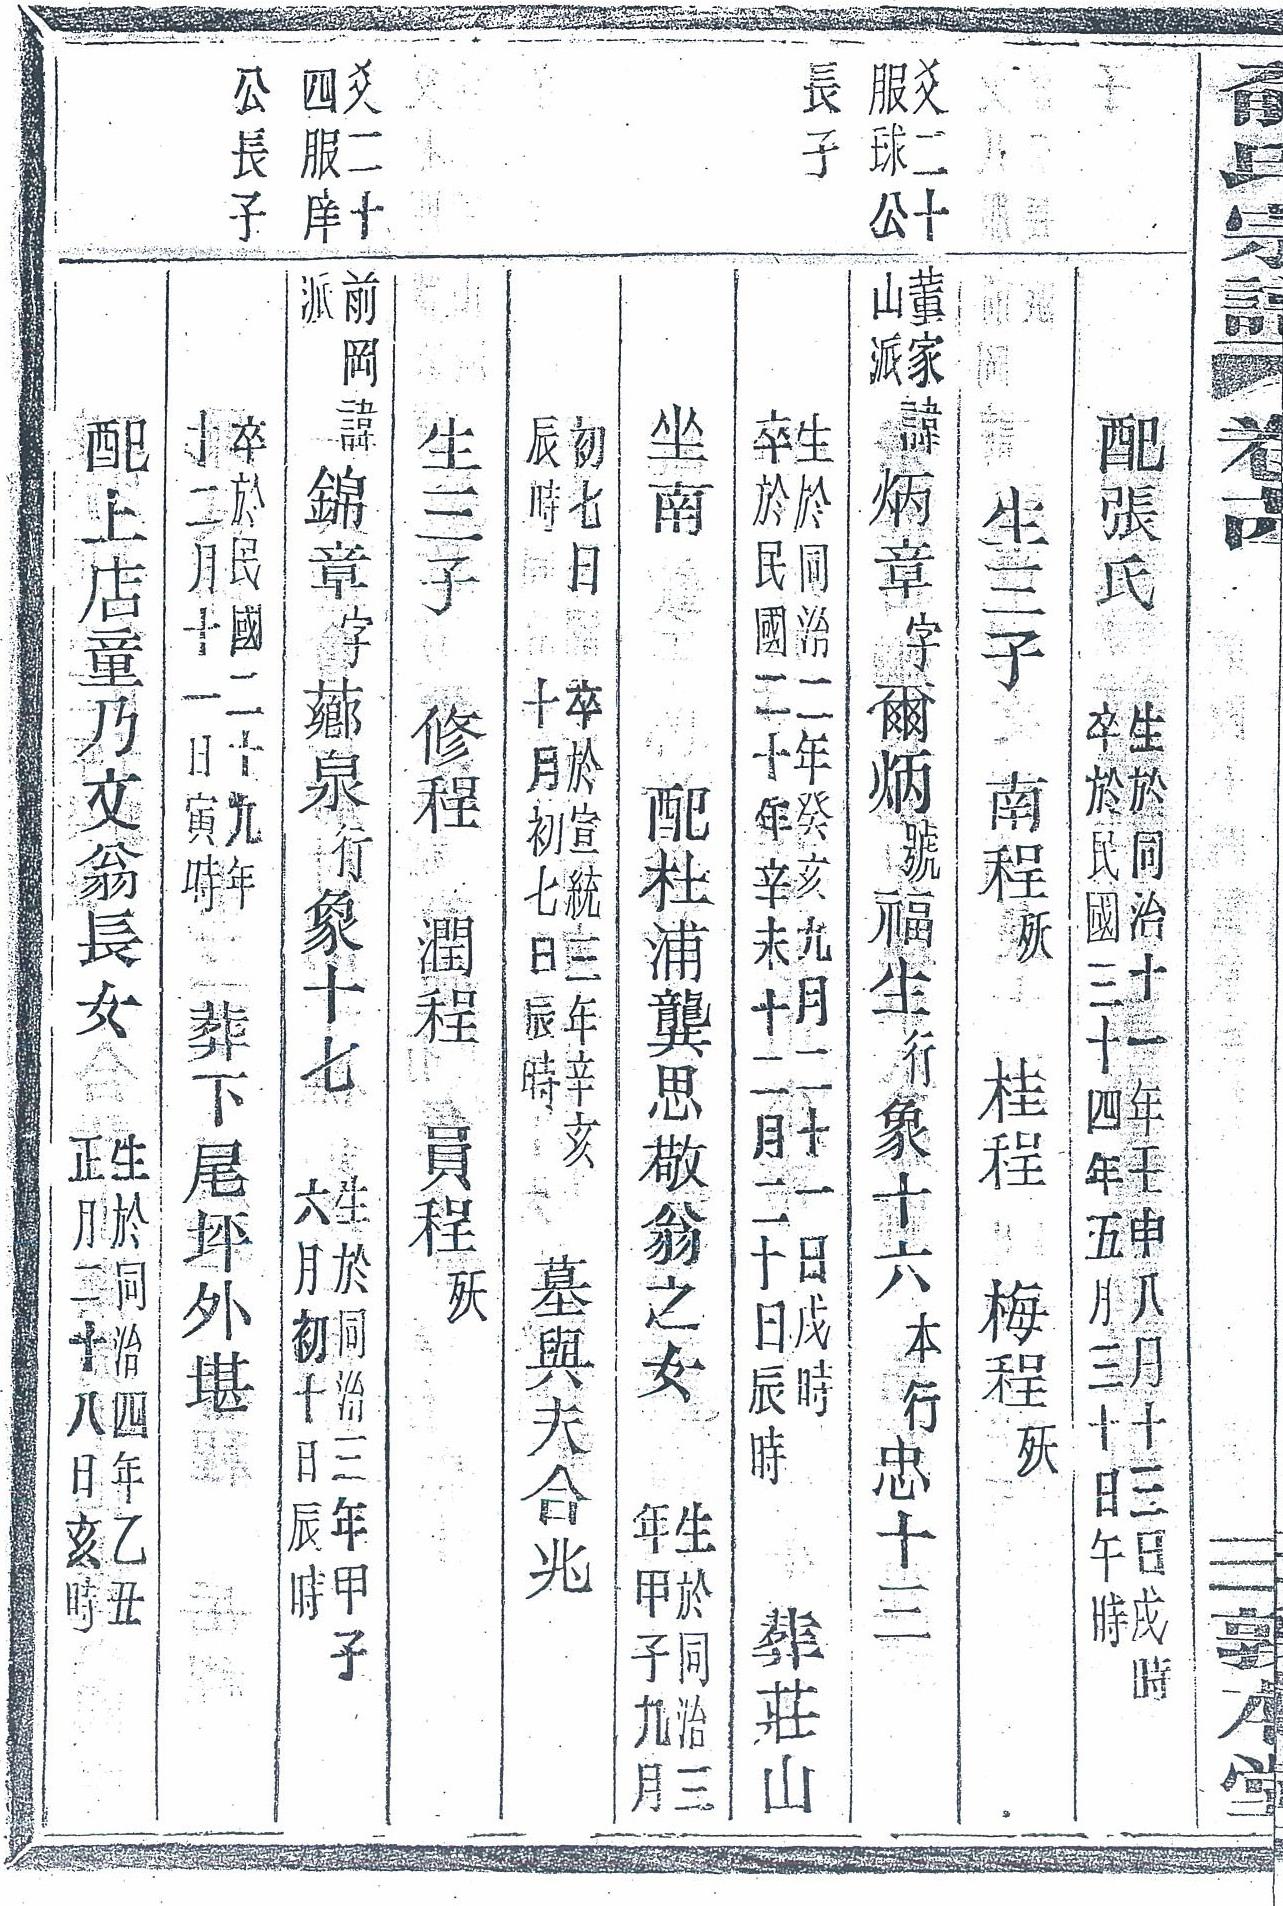 氏宗譜 卷 敦本堂
配張氏 生於同治十一年壬申八月十三日戌時
卒於民國三十四年五月三十日午時
生三子 南程殀 桂程 梅程殀
爻二十
服球公
長子
董家
山派
諱炳章字爾炳號福生行象十六本行忠十三
生於同治二年癸亥九月二十一日戌時
卒於民國二十年辛未十二月二十日辰時
葬莊山
坐南 配杜浦龔思敬翁之女 生於同治三
年甲子九月
初七日
辰時
卒於宣統三年辛亥
十月初七日辰時
墓與夫合兆
生三子 修程 潤程 員程殀
爻二十
四服庠
公長子
前岡
派
諱錦章字薌泉行象十七 生於同治三年甲子
六月初十日辰時
卒於民國二十九年
十二月十一日寅時
葬下尾坪外堪
配上店童乃文翁長女 生於同治四年乙丑
正月二十八日亥時